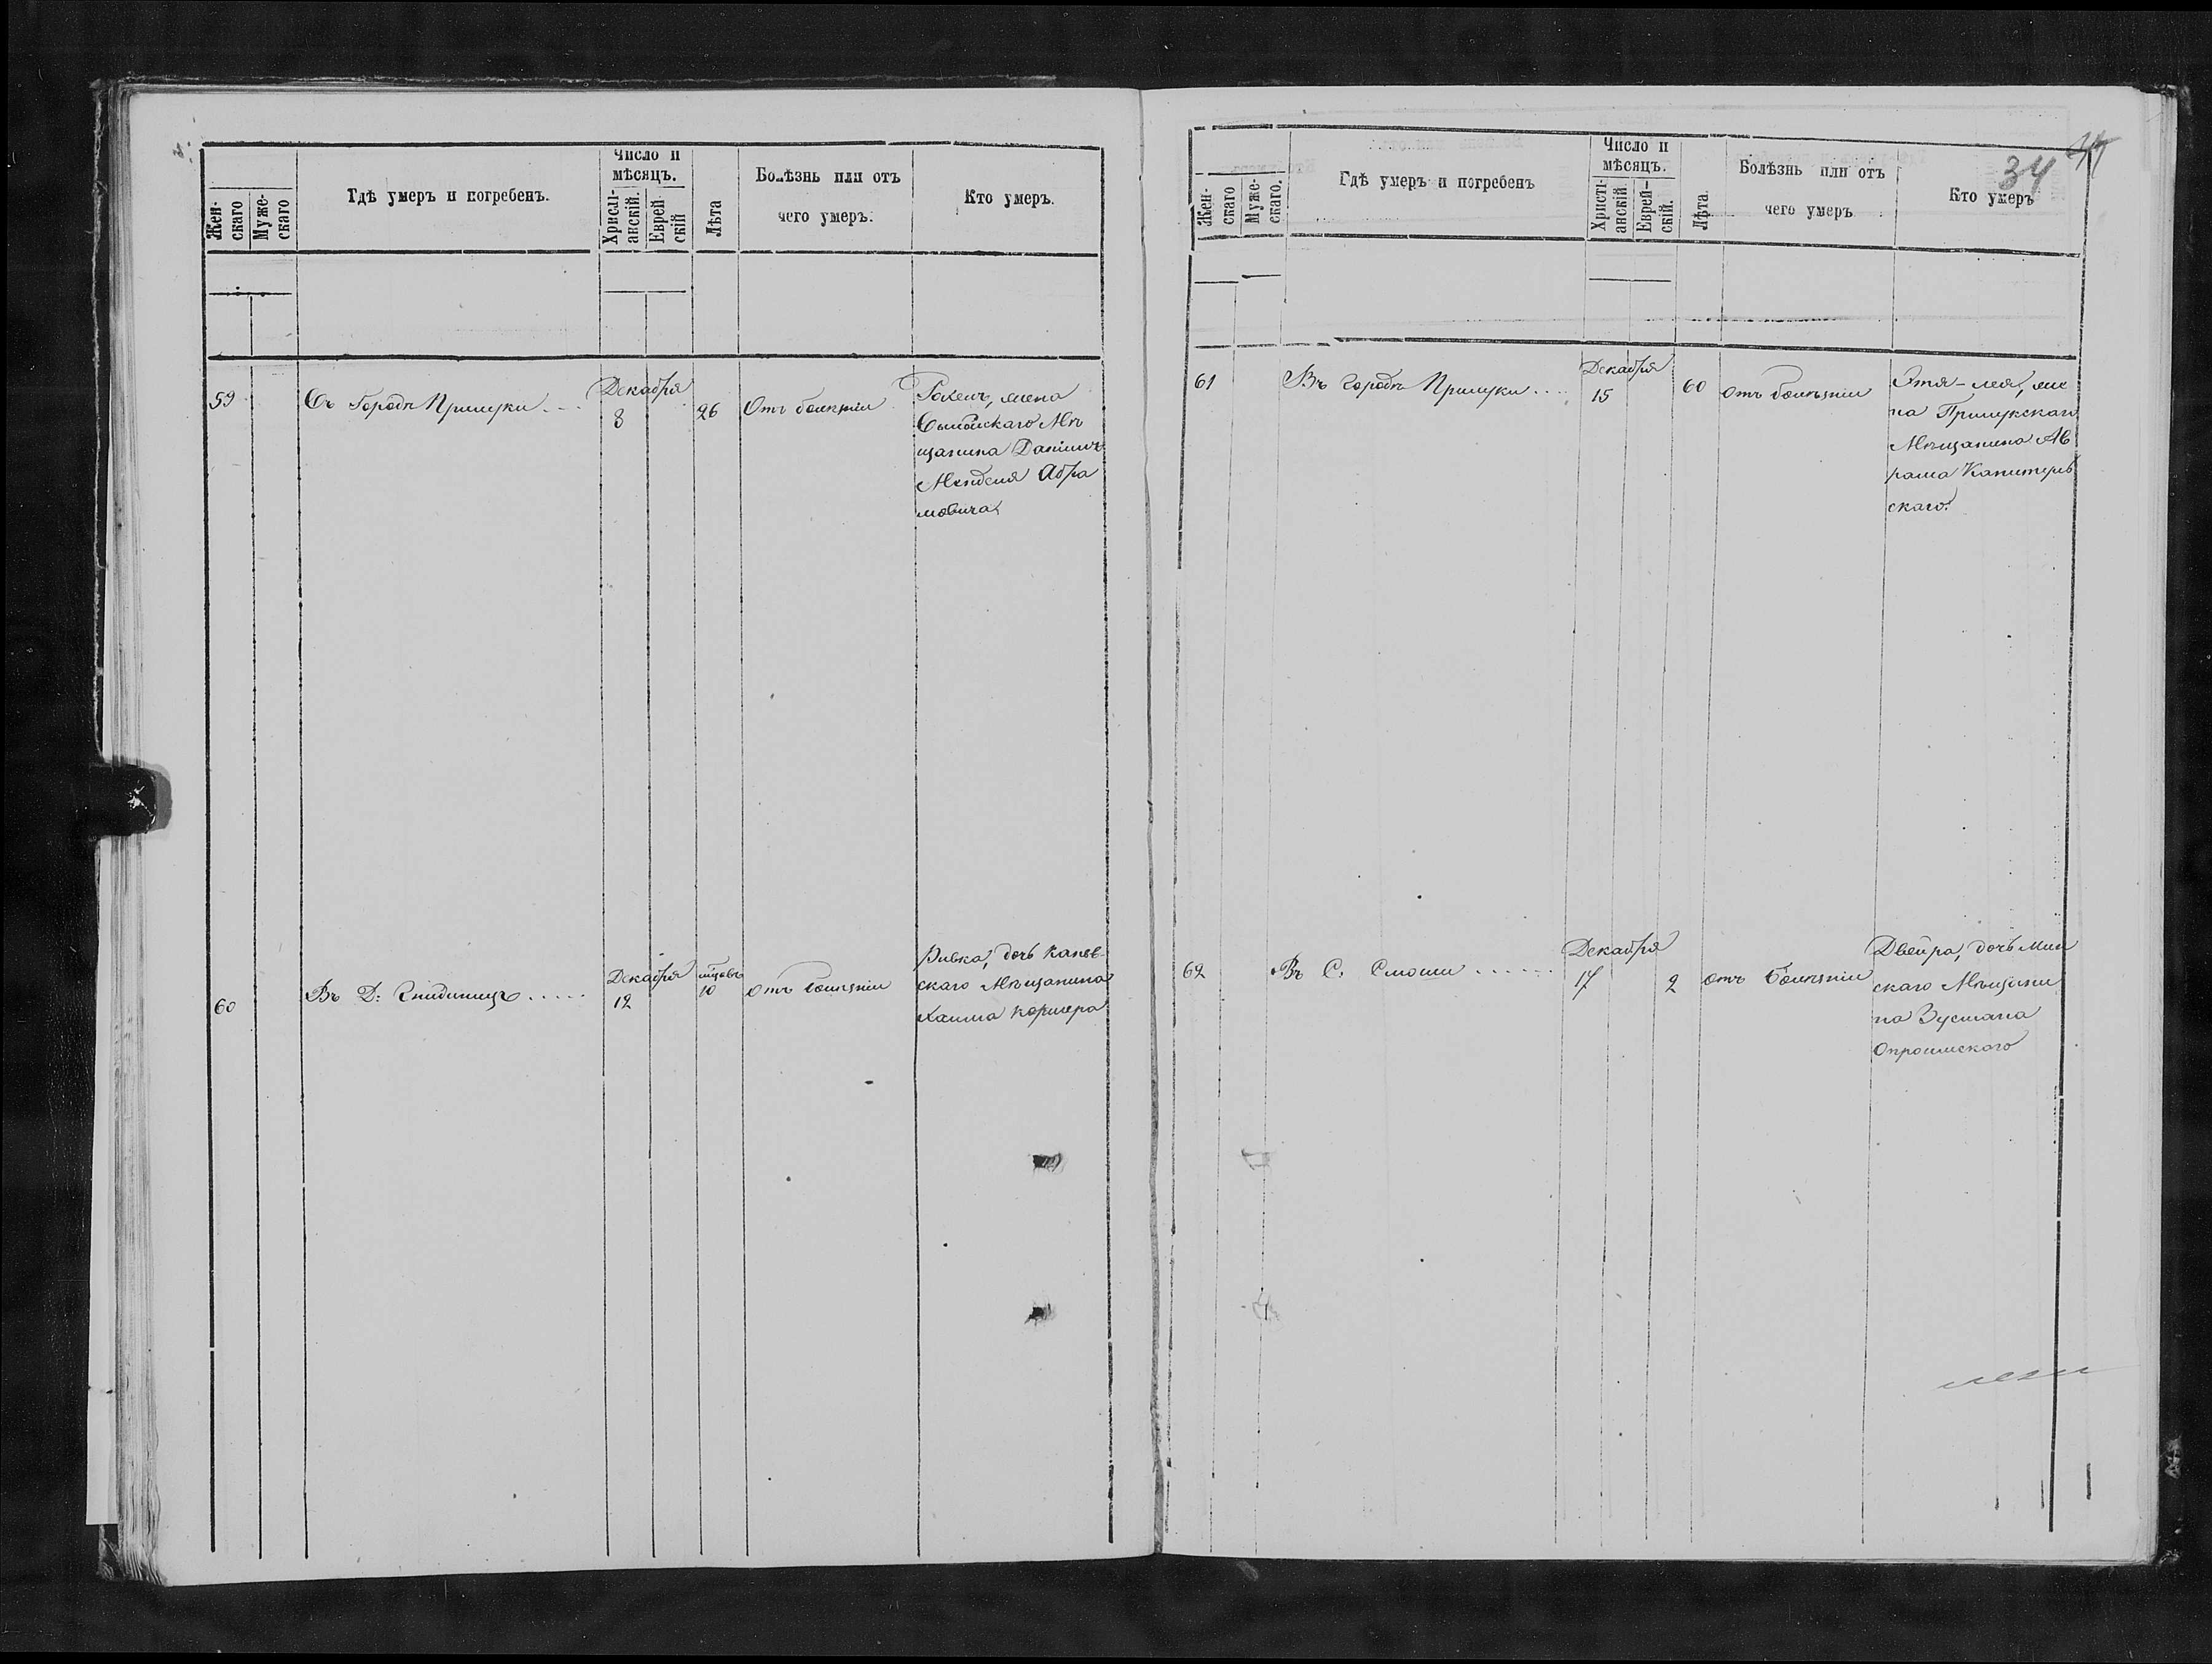 Жен-
скаго
Муже-
скаго
Гдѣ умеръ и погребенъ.
Число и
мѣсяцъ.
Христі-
анскій.
Еврей-
скій
Лѣта
Болѣзнь или отъ
чего умеръ.
Кто умеръ.
59
Въ Городѣ Прилуки
Декабря
8
26
Отъ болѣзни
Рохель, жена
Мѣ
щанина
Менделя Абра
мовича
60
Въ Д.
Декабря
12
10
отъ болѣзни
Ривка, дочь Канев-
скаго Мѣщанина
Хаима
34
Жен-
скаго
Муже-
скаго.
Гдѣ умеръ и погребенъ
Число и
мѣсяцъ.
Христі-
анскій
Еврей-
скій.
Лѣта
Болѣзнь или отъ
чего умеръ
Кто умеръ
61
Въ Городѣ Прилуки
Декабря
15
60
отъ болѣзни
Этя-Лея, же
на Прилукскаго
Мѣщанина Ав
рама
скаго.
62
Въ С. Смоши
Декабря
17
2
отъ болѣзни
Двейра, дочь Мин
скаго Мѣщани
на Зусмана